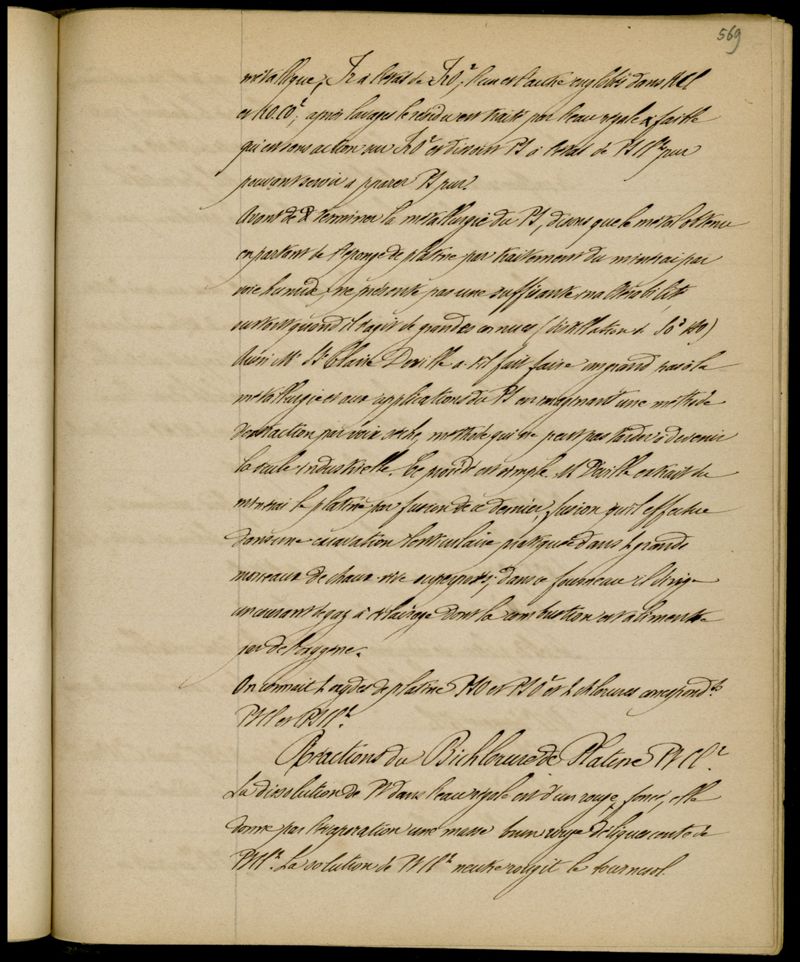 569
métallique, Ir à l'état de IrO², l'un et l'autre englobés dans KCl
et KO.CO²; après lavages le résidu est traité par l'eau régale faible
qui est sans action sur IrO² et dissout Pt à l'état de PtCl² pur
pouvant servir à préparer Pt pur.
Avant de terminer la métallurgie du Pt, disons que le métal obtenu
en partant de l'éponge de platine par traitement du minerai par
voie humide, ne présente pas une suffisante malléabilité
surtout quand il s'agit de grandes cornues (distillation de SO³HO)
Aussi Mr Ste Claire Deville a-t-il fait faire un grand pas à la
métallurgie et aux applications du Pt en imaginant une méthode
d'extraction par voie sèche, méthode qui ne peut pas tarder à devenir
la seule industrielle. Le procédé est simple. Mr Deville extrait du
minerai le platine par fusion de ce dernier, fusion qu'il effectue
dans une excavation lenticulaire pratiquée dans 2 grands
morceaux de chaux vive superposés; dans ce fourneau il dirige
un courant de gaz à éclairage dont la combustion est alimentée
par de l'oxygène.
On connaît 2 oxydes de platine PtO et PtO² et 2 chlorures correspond.ts
PtCl et PtCl².
Réactions du Bichlorure de Platine PtCl².
La dissolution de Pt dans l'eau régale est d'un rouge foncé, elle
donne par l'évaporation une masse brun rouge déliquescente de
PtCl². La solution de PtCl² neutre rougit le tournesol.